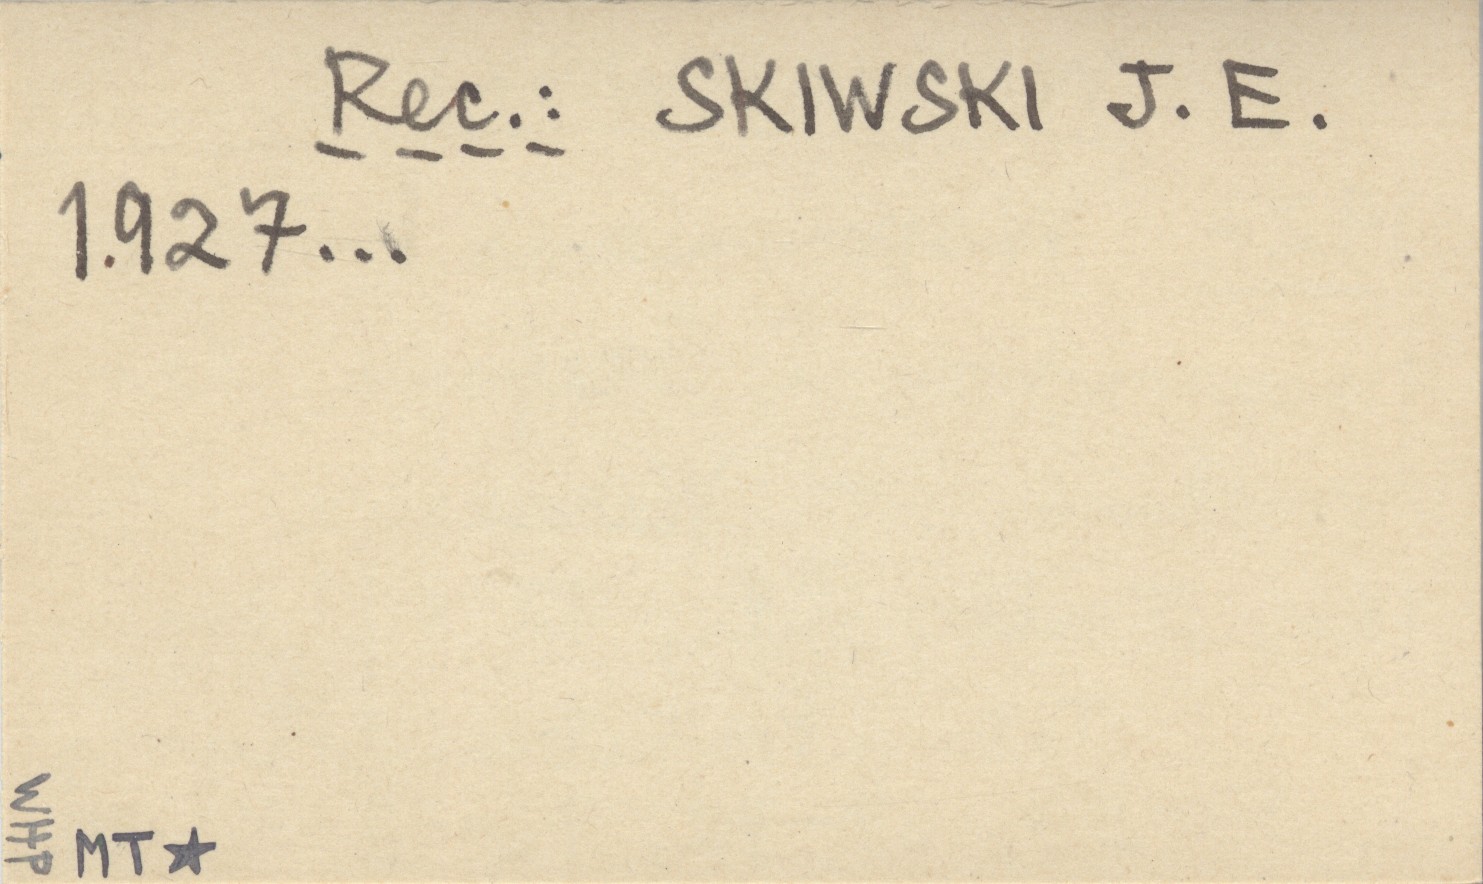 Rec.: SKIWSKI J. E.
1.927...
WHP
MT★